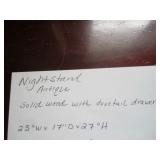 Nightstand
Antique
Solid wood with dovetail drawer
23"W x 17"D x 27"H